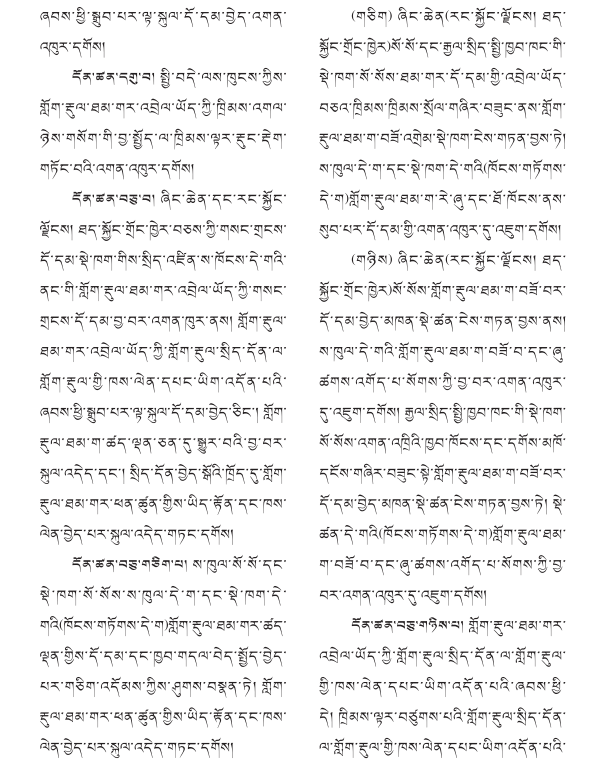 ཞབས་ཕྱི་སྒྲུབ་པར་ལྟ་སྐུལ་དོ་དམ་བྱེད་འགན་
འཁུར་དགོས།
དོན་ཚན་དགུ་བ། སྤྱི་བདེ་ལས་ཁུངས་ཀྱིས་
གློག་རྡུལ་ཐམ་གར་འབྲེལ་ཡོད་ཀྱི་ཁྲིམས་འགལ་
ཉེས་གསོག་གི་བྱ་སྤྱོད་ལ་ཁྲིམས་ལྟར་རྡུང་རྡེག་
གཏོང་བའི་འགན་འཁུར་དགོས།
དོན་ཚན་བཅུ་བ། ཞིང་ཆེན་དང་རང་སྐྱོང་
ལྗོངས། ཐད་སྐྱོང་གྲོང་ཁྱེར་བཅས་ཀྱི་གསང་གྲངས་
དོ་དམ་སྡེ་ཁག་གིས་སྲིད་འཛིན་ས་ཁོངས་དེ་གའི་
ནང་གི་གློག་རྡུལ་ཐམ་གར་འབྲེལ་ཡོད་ཀྱི་གསང་
གྲངས་དོ་དམ་བྱ་བར་འགན་ཁུར་ནས། གློག་རྡུལ་
ཐམ་གར་འབྲེལ་ཡོད་ཀྱི་གློག་རྡུལ་སྲིད་དོན་ལ་
གློག་རྡུལ་གྱི་ཁས་ལེན་དཔང་ཡིག་འདོན་པའི་
ཞབས་ཕྱི་སྒྲུབ་པར་ལྟ་སྐུལ་དོ་དམ་བྱེད་ཅིང་། གློག་
རྡུལ་ཐམ་ག་ཚད་ལྡན་ཅན་དུ་སྒྱུར་བའི་བྱ་བར་
སྐུལ་འདེད་དང་། སྲིད་དོན་བྱེད་སྒོའི་ཁྲོད་དུ་གློག་
རྡུལ་ཐམ་གར་ཕན་ཚུན་གྱིས་ཡིད་རྟོན་དང་ཁས་
ལེན་བྱེད་པར་སྐུལ་འདེད་གཏང་དགོས།
དོན་ཚན་བཅུ་གཅིག་པ། ས་ཁུལ་སོ་སོ་དང་
སྡེ་ཁག་སོ་སོས་ས་ཁུལ་དེ་ག་དང་སྡེ་ཁག་དེ་
གའི(ཁོངས་གཏོགས་དེ་ག)གློག་རྡུལ་ཐམ་གར་ཚད་
ལྡན་གྱིས་དོ་དམ་དང་ཁྱབ་གདལ་བེད་སྤྱོད་བྱེད་
པར་གཅིག་འདོམས་ཀྱིས་ཤུགས་བསྣན་ཏེ། གློག་
རྡུལ་ཐམ་གར་ཕན་ཚུན་གྱིས་ཡིད་རྟོན་དང་ཁས་
ལེན་བྱེད་པར་སྐུལ་འདེད་གཏང་དགོས།
(གཅིག) ཞིང་ཆེན(རང་སྐྱོང་ལྗོངས། ཐད་
སྐྱོང་གྲོང་ཁྱེར)སོ་སོ་དང་རྒྱལ་སྲིད་སྤྱི་ཁྱབ་ཁང་གི་
སྡེ་ཁག་སོ་སོས་ཐམ་གར་དོ་དམ་གྱི་འབྲེལ་ཡོད་
བཅའ་ཁྲིམས་ཁྲིམས་སྲོལ་གཞིར་བཟུང་ནས་གློག་
རྡུལ་ཐམ་ག་བཟོ་འགྲེམ་སྡེ་ཁག་ངེས་གཏན་བྱས་ཏེ།
ས་ཁུལ་དེ་ག་དང་སྡེ་ཁག་དེ་གའི(ཁོངས་གཏོགས་
དེ་ག)གློག་རྡུལ་ཐམ་ག་རེ་ཞུ་དང་ཐོ་ཁོངས་ནས་
སུབ་པར་དོ་དམ་གྱི་འགན་འཁུར་དུ་འཇུག་དགོས།
(གཉིས) ཞིང་ཆེན(རང་སྐྱོང་ལྗོངས། ཐད་
སྐྱོང་གྲོང་ཁྱེར)སོ་སོས་གློག་རྡུལ་ཐམ་ག་བཟོ་བར་
དོ་དམ་བྱེད་མཁན་སྡེ་ཚན་ངེས་གཏན་བྱས་ནས།
ས་ཁུལ་དེ་གའི་གློག་རྡུལ་ཐམ་ག་བཟོ་བ་དང་ཞུ་
ཚགས་འགོད་པ་སོགས་ཀྱི་བྱ་བར་འགན་འཁུར་
དུ་འཇུག་དགོས། རྒྱལ་སྲིད་སྤྱི་ཁྱབ་ཁང་གི་སྡེ་ཁག་
སོ་སོས་འགན་འཁྲིའི་ཁྱབ་ཁོངས་དང་དགོས་མཁོ་
དངོས་གཞིར་བཟུང་སྟེ་གློག་རྡུལ་ཐམ་ག་བཟོ་བར་
དོ་དམ་བྱེད་མཁན་སྡེ་ཚན་ངེས་གཏན་བྱས་ཏེ། སྡེ་
ཚན་དེ་གའི(ཁོངས་གཏོགས་དེ་ག)གློག་རྡུལ་ཐམ་
ག་བཟོ་བ་དང་ཞུ་ཚགས་འགོད་པ་སོགས་ཀྱི་བྱ་
བར་འགན་འཁུར་དུ་འཇུག་དགོས།
དོན་ཚན་བཅུ་གཉིས་པ། གློག་རྡུལ་ཐམ་གར་
འབྲེལ་ཡོད་ཀྱི་གློག་རྡུལ་སྲིད་དོན་ལ་གློག་རྡུལ་
གྱི་ཁས་ལེན་དཔང་ཡིག་འདོན་པའི་ཞབས་ཕྱི་
དེ། ཁྲིམས་ལྟར་བཙུགས་པའི་གློག་རྡུལ་སྲིད་དོན་
ལ་གློག་རྡུལ་གྱི་ཁས་ལེན་དཔང་ཡིག་འདོན་པའི་